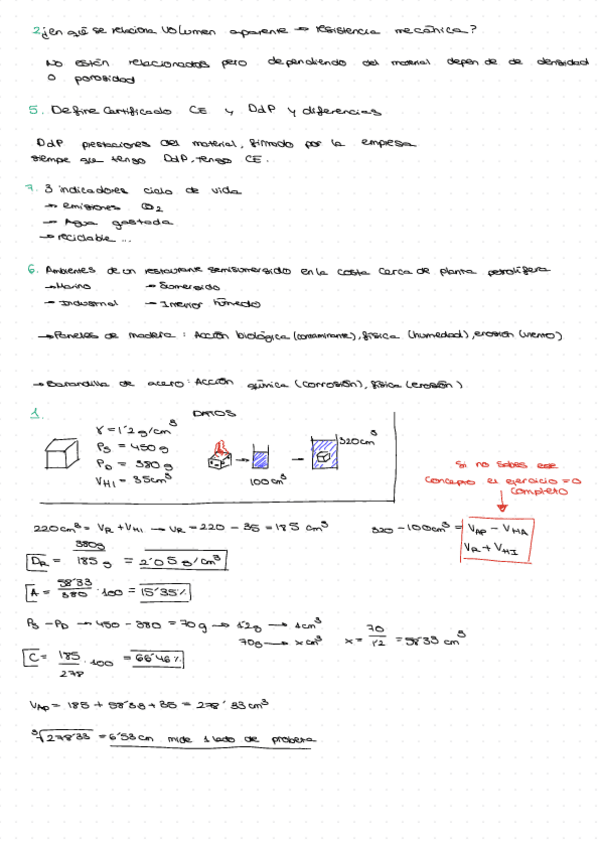 2. ¿en qué se relaciona volumen aparente → resistencia mecánica?
No están relacionados pero dependiendo del material depende de densidad
o porosidad
5. Define Certificado CE y DdP y diferencias
DdP prestaciones del material, firmado por la empresa
siempre que tengo DdP, tengo CE.
7. 3 indicadores ciclo de vida
→ emisiones CO2
→ Agua gastada
→ reciclable ...
6. Ambientes de un restaurante semisumergido en la costa cerca de planta petrolífera
→ Marino → Sumergido
→ Industrial → Interior húmedo
→ Paneles de madera : Acción biológica (contaminante), física (humedad), erosión (viento)
→ Barandilla de acero: Acción química (corrosión), física (erosión)
1. DATOS
γ = 1'2 g/cm³
Ps = 450 g
PD = 380 g
VHI = 35cm³
100 cm³
320cm³
Si no sabes ese
concepto el ejercicio = 0
completo
220cm³ = VR + VHI → VR = 220 - 35 = 185 cm³
320 - 100cm³ = VAP - VHA
VR + VHI
DR = 380g / 185 g = 2'05 g/cm³
A = 58'33 / 380 · 100 = 15'35 %
Ps - PD → 450 - 380 = 70g → 1'2g → 1cm³
70g → x cm³ x = 70 / 1'2 = 58'33 cm³
C = 185 / 278 · 100 = 66'46 %
VAP = 185 + 58'33 + 35 = 278'33 cm³
³√278'33 = 6'53 cm mide 1 lado de probeta